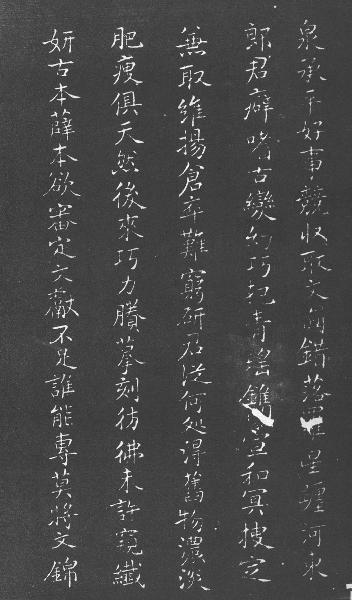 泉承平好事競收取文錯落星躔河東
郎君癖嗜古變幻巧把青瑤鐫宣和冥搜定
無取維揚倉卒難窮研君從何処得舊物濃淡
肥瘦俱天然後來巧力賸摹刻彷彿未許窺纖
妍古本薛本欲審定文獻不足誰能專莫將文錦